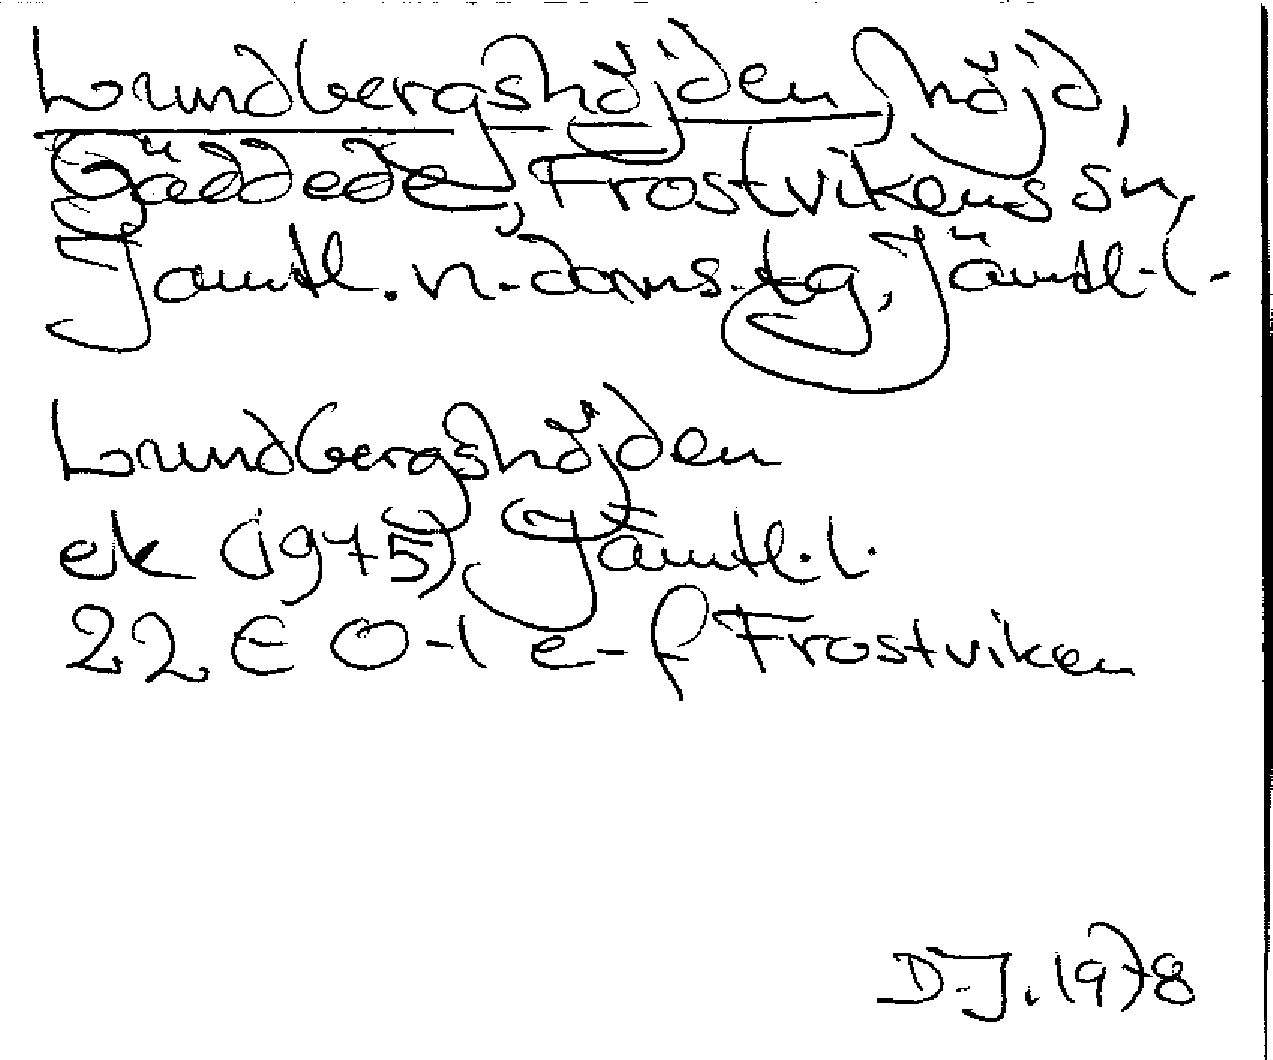 Lundbergshöjden, höjd,
Gäddede, Frostvikens sn,
Jämtl. n. doms. tg, Jämtl. l.
Lundbergshöjden
ek (1975), Jämtl. l.
22 E 0-1 e-f Frostviken
D-J. 1978